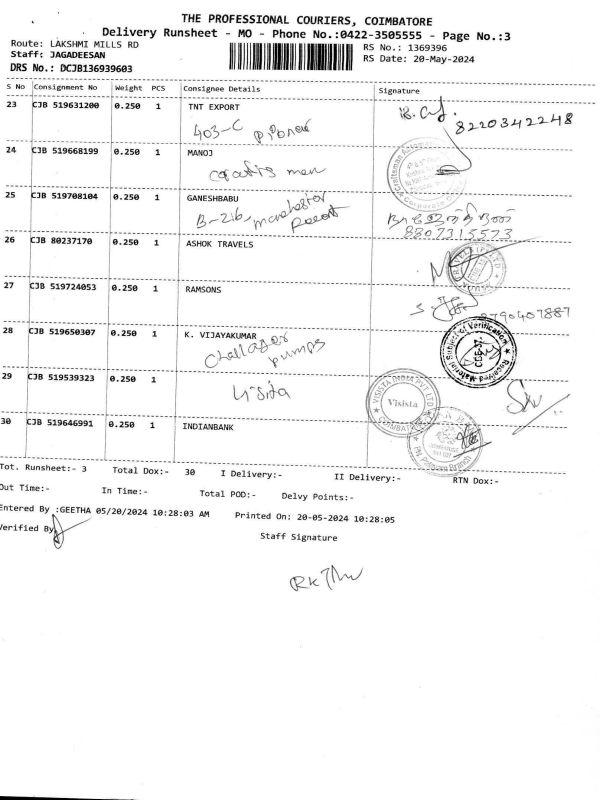 THE PROFESSIONAL COURIERS, COIMBATORE
Delivery Runsheet - MO - Phone No.:0422-3505555 - Page No.:3
Route: LAKSHMI MILLS RD
Staff: JAGADEESAN
DRS No.: DCJB136939603
RS No.: 1369396
RS Date: 20-May-2024
S No Consignment No Weight PCS Consignee Details Signature
23 CJB 519631200 0.250 1 TNT EXPORT
403-C
8220342248
24 CJB 519668199 0.250 1 MANOJ
25 CJB 519708104 0.250 1 GANESHBABU
B-216, manchester
8807315523
26 CJB 80237170 0.250 1 ASHOK TRAVELS
27 CJB 519724053 0.250 1 RAMSONS
8790407887
28 CJB 519650307 0.250 1 K. VIJAYAKUMAR
pumps
Received Material Subject of Verification
29 CJB 519539323 0.250 1
Visista
VISISTA INDIA PVT LTD
Visista
COIMBATORE
30 CJB 519646991 0.250 1 INDIANBANK
Tot. Runsheet:- 3 Total Dox:- 30 I Delivery:- II Delivery:- RTN Dox:-
Out Time:- In Time:- Total POD:- Delvy Points:-
Entered By :GEETHA 05/20/2024 10:28:03 AM Printed On: 20-05-2024 10:28:05
Verified By
Staff Signature